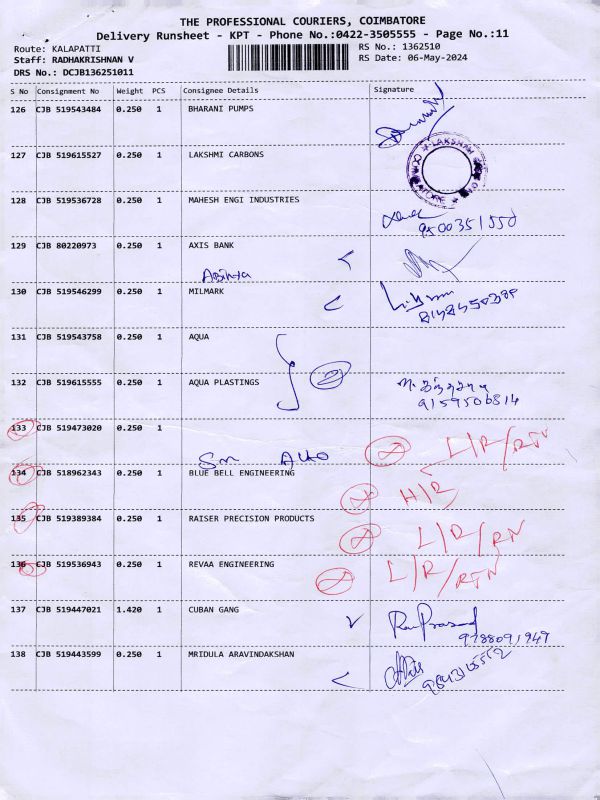 THE PROFESSIONAL COURIERS, COIMBATORE
Delivery Runsheet - KPT - Phone No.:0422-3505555 - Page No.:11
Route: KALAPATTI
RS No.: 1362510
Staff: RADHAKRISHNAN V
RS Date: 06-May-2024
DRS No.: DCJB136251011
S No Consignment No Weight PCS Consignee Details Signature
126 CJB 519543484 0.250 1 BHARANI PUMPS
127 CJB 519615527 0.250 1 LAKSHMI CARBONS
128 CJB 519536728 0.250 1 MAHESH ENGI INDUSTRIES
9500351550
129 CJB 80220973 0.250 1 AXIS BANK
130 CJB 519546299 0.250 1 MILMARK
131 CJB 519543758 0.250 1 AQUA
2
132 CJB 519615555 0.250 1 AQUA PLASTINGS
9159506814
133 CJB 519473020 0.250 1
L/R/RTN
134 CJB 518962343 0.250 1 BLUE BELL ENGINEERING
H/R
135 CJB 519389384 0.250 1 RAISER PRECISION PRODUCTS
L/R/RN
136 CJB 519536943 0.250 1 REVAA ENGINEERING
L/R/RTN
137 CJB 519447021 1.420 1 CUBAN GANG
RamPrasad
9788091949
138 CJB 519443599 0.250 1 MRIDULA ARAVINDAKSHAN